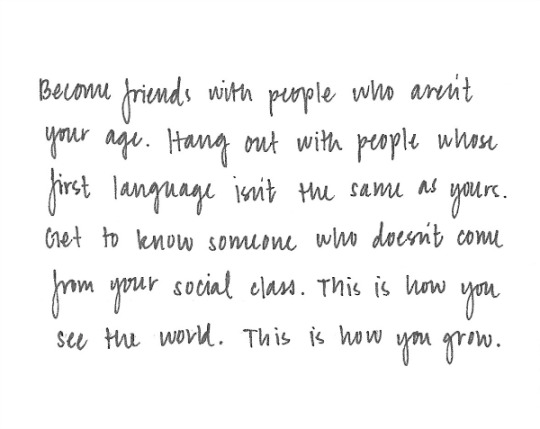 Become friends with people who aren't
your age. Hang out with people whose
first language isn't the same as yours.
Get to know someone who doesn't come
from your social class. This is how you
see the world. This is how you grow.